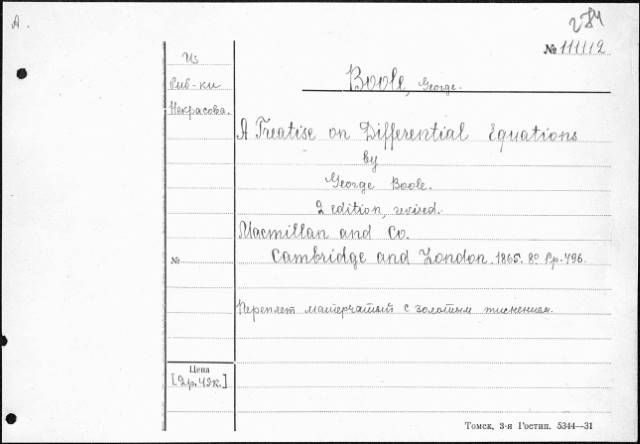 А.
284
№ 111112
Из
биб-ки
Некрасова.
Boole, George.
A Treatise on Differential Equations
by
George Boole.
2 edition, revised.
Macmillan and Co.
№
Cambridge and London. 1865. 8° Pp. 496.
Переплет матерчатый с золотым тиснением.
Цена
[2р. 42к.]
Томск, 3-я Гостип. 5344—31